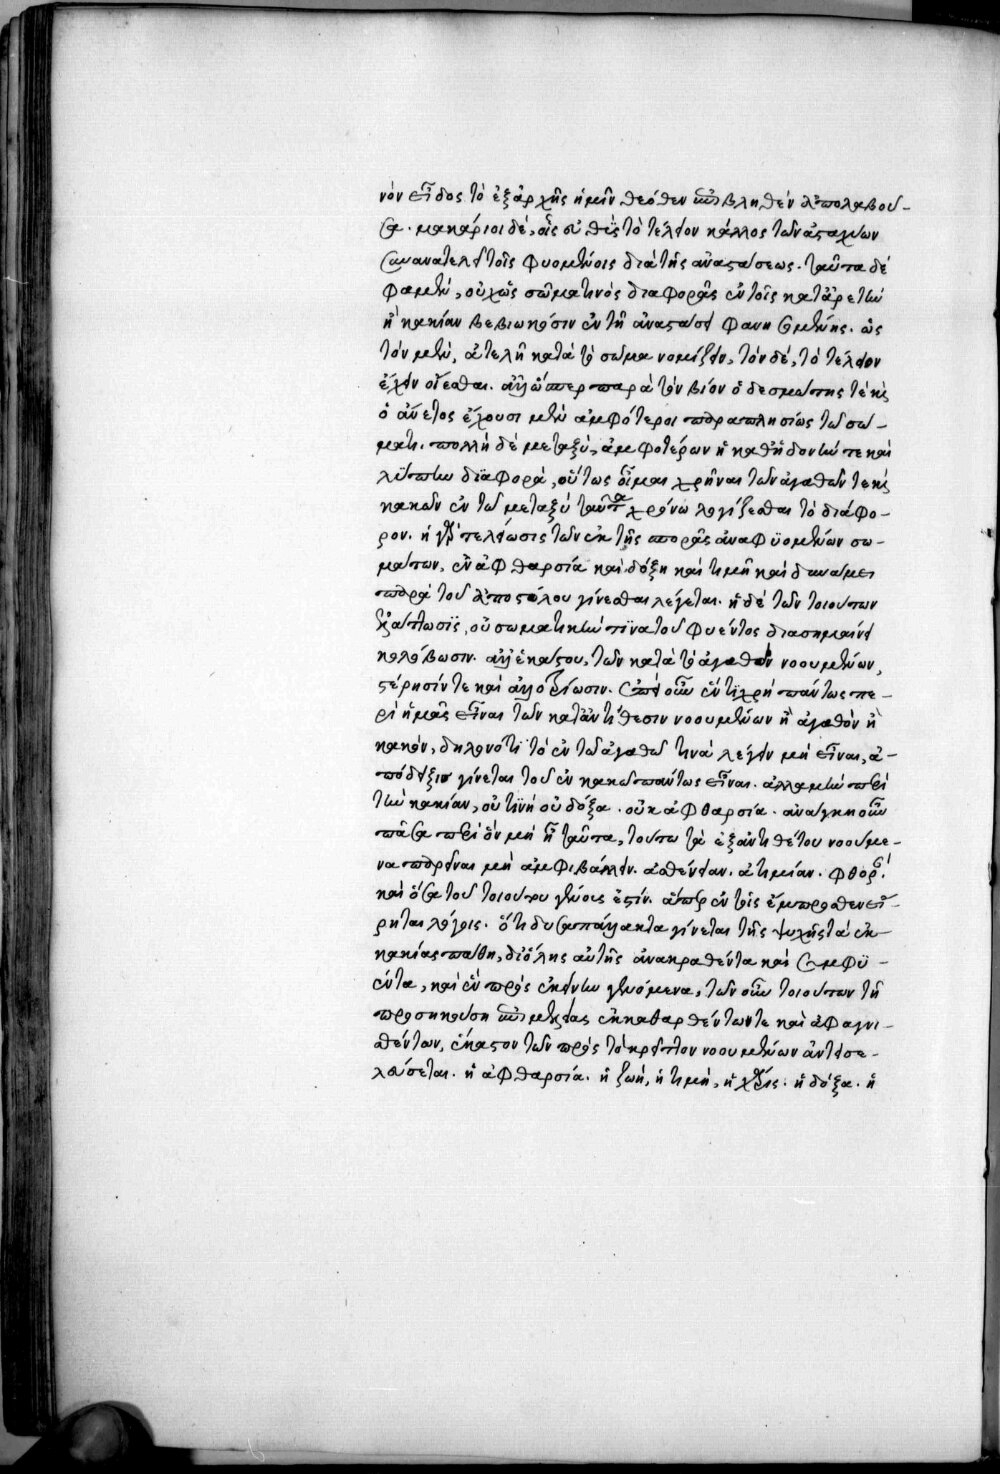 νὸν εἶδος τὸ ἐξἀρχῆς ἡμῖν θεόθεν ἐπιβληθὲν ἀπολαβοῦ-
σα. μακάριοι δέ, οἷς εὐθὺς τὸ τέλειον κάλλος τῶν ἀσταχύων
συνανατελεῖ τοῖς φυομένοις διὰ τῆς ἀναστάσεως. ταῦτα δέ
φαμεν, οὐχ ὡς σωματικῆς διαφορᾶς ἐν τοῖς κατ' ἀρετὴν
ἢ κακίαν βεβιωκόσιν ἐν τῇ ἀναστάσει φανησομένης. ὡς
τὸν μὲν, ἀτελῆ κατὰ τὸ σῶμα νομίζειν, τὸν δέ, τὸ τέλειον
ἔχειν οἴεσθαι. ἀλλ' ὥσπερ παρὰ τὸν βίον ὁ δεσμώτης τὲ καὶ
ὁ ἄνετος ἔχουσι μὲν ἀμφότεροι παραπλησίως τῷ σώ-
ματι. πολλὴ δὲ μεταξὺ ἀμφοτέρων ἡ καθ' ἡδονήν τε καὶ
λύπην διαφορά, οὕτως οἶμαι χρῆναι τῶν ἀγαθῶν τὲ καὶ
κακῶν ἐν τῷ μεταξὺ ταῦτα χρόνῳ λογίζεσθαι τὸ διάφο-
ρον. ἡ γὰρ τελείωσις τῶν ἐκ τῆς σπορᾶς ἀναφυομένων σω-
μάτων, ἐν ἀφθαρσίᾳ καὶ δόξῃ καὶ τιμῇ καὶ δυνάμει
παρὰ τοῦ ἀποστόλου γίνεσθαι λέγεται. ἡ δὲ τῶν τοιούτων
ἐλάττωσις, οὐ σωματικήν τινα τοῦ φυέντος διασημαίνει
κολόβωσιν. ἀλλ' ἑκάστου, τῶν κατὰ τὸ ἀγαθὸν νοουμένων,
στέρησίν τε καὶ ἀλλοτρίωσιν. ἐπεὶ οὖν ἕν τι χρὴ πάντως πε-
ρὶ ἡμᾶς εἶναι τῶν κατ' ἀντίθεσιν νοουμένων ἢ ἀγαθὸν ἢ
κακόν, δηλονότι τὸ ἐν τῷ ἀγαθῷ τινὰ λέγειν μὴ εἶναι, ἀ-
πόδειξις γίνεται τοῦ ἐν κακῷ πάντως εἶναι. ἀλλαμὴν περὶ
τὴν κακίαν, οὐ τιμὴ οὐ δόξα. οὐκ ἀφθαρσία. ἀνάγκη οὖν
πᾶσα περὶ ὃν μὴ ᾖ ταῦτα, τούτῳ τὰ ἐξ ἀντιθέτου νοούμε-
να παρεῖναι μὴ ἀμφιβάλλειν. ἀσθένειαν. ἀτιμίαν. φθοράν.
καὶ ὅσα τοῦ τοιούτου γένους ἐστίν. ἅπερ ἐν τοῖς ἔμπροσθεν εἴ-
ρηται λόγοις. ὅτι δυσαπάλλακτα γίνεται τῆς ψυχῆς τὰ ἐκ
κακίας πάθη, διόλης αὐτῆς ἀνακραθέντα καὶ συμφυ-
έντα, καὶ ἓν πρὸς ἐκείνην γενόμενα, τῶν οὖν τοιούτων τῇ
προσηκούσῃ ἐπιμελείᾳ ἐκκαθαρθέντων τε καὶ ἀφαγνι-
σθέντων, ἕκαστον τῶν πρὸς τὸ κρεῖττον νοουμένων ἀντεισε-
λεύσεται. ἡ ἀφθαρσία. ἡ ζωή, ἡ τιμή, ἡ χάρις. ἡ δόξα. ἡ